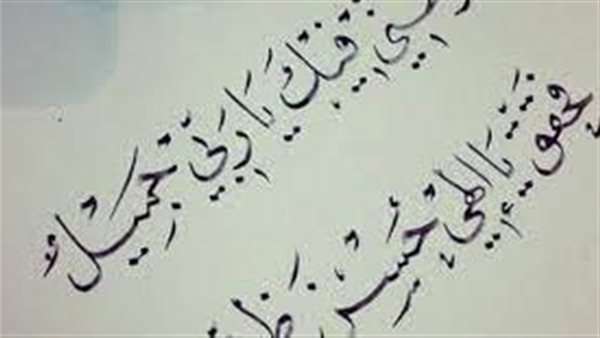 فِيكَ يَا رَبِّي جَمِيلٌ
فحقق يَا إلهي حُسْنَ